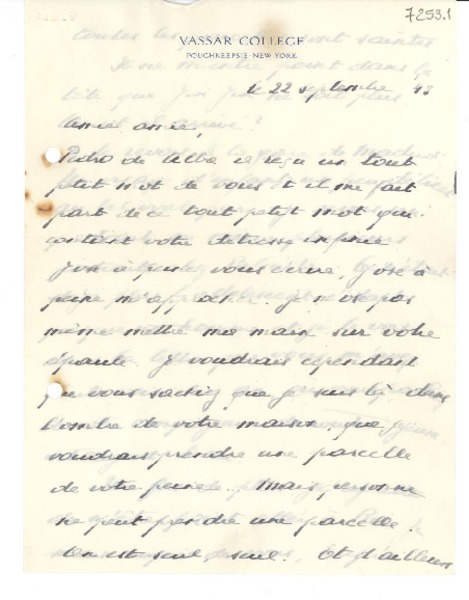 7253.1
VASSAR COLLEGE
POUGHKEEPSIE · NEW YORK
le 22 septembre 43
Amie, amie,
Pedro de Alba a reçu un tout
petit mot de vous et il me fait
part de ce tout petit mot qui
contient votre détresse infinie
J'ose à peine vous écrire, j'ose à
peine m'approcher. je n'ose pas
même mettre ma main sur votre
épaule. Je voudrais cependant
que vous sachiez que je suis là dans
l'ombre de votre maison, que je
voudrais prendre une parcelle
de votre peine. Mais personne
ne peut prendre une parcelle.
On est seul, seul. Et d'ailleurs